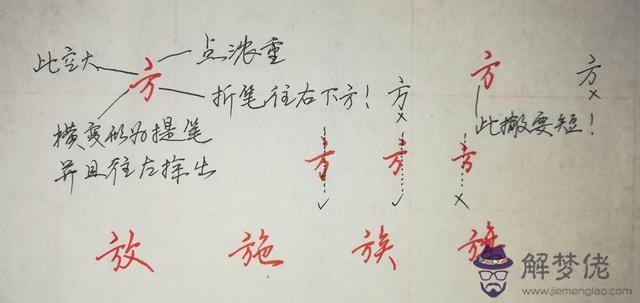 此空大
方
点浓重
折笔往右下方！
横变形为提笔
并且往左探出
方
×
方
此撇要短！
方
×
方
✓
方
✓
方
×
放 施 族 旗
解梦佬
www.jiemenglao.com